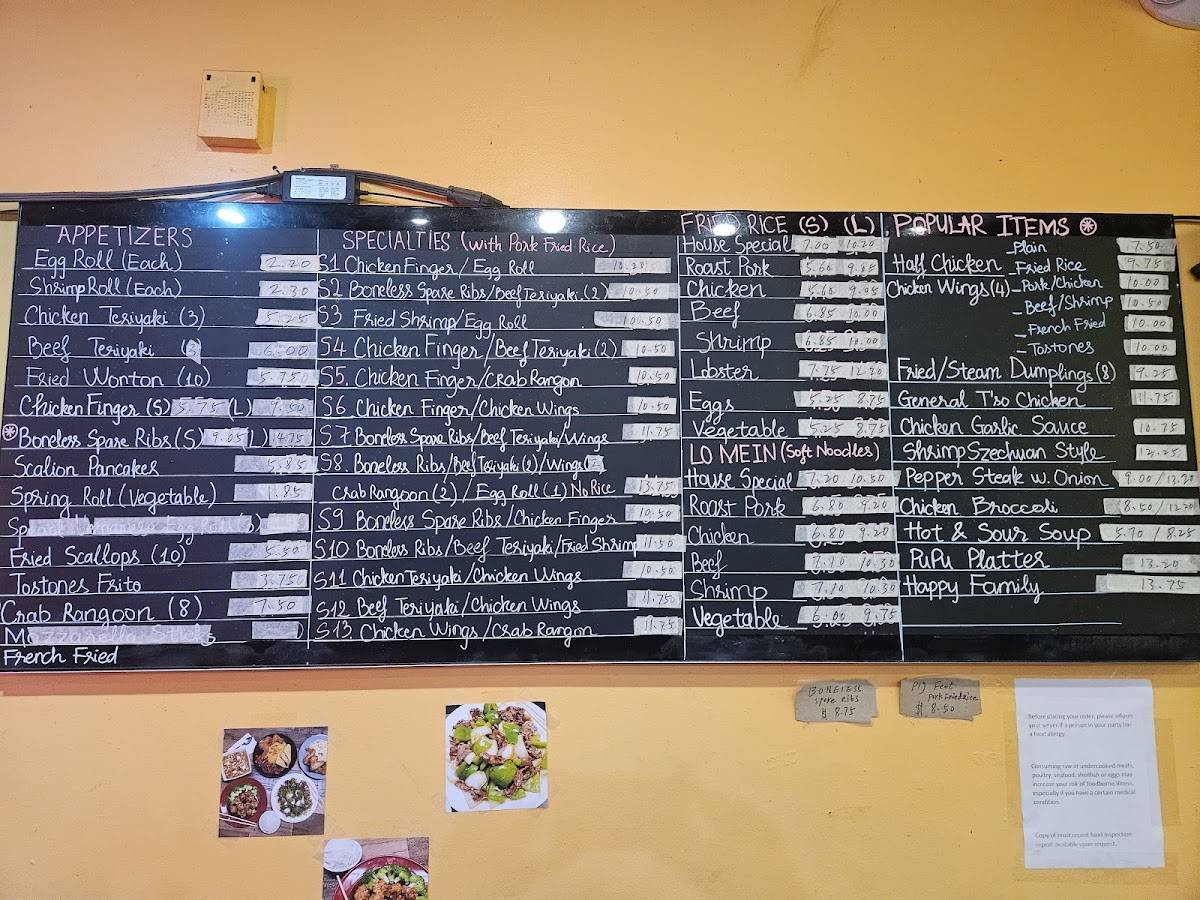 APPETIZERS
Egg Roll (Each) 2.20
Shrimp Roll (Each) 2.30
Chicken Teriyaki (3) 5.25
Beef Teriyaki (3) 6.00
Fried Wonton (10) 5.75
Chicken Finger (S) 5.75 (L) 9.50
Boneless Spare Ribs (S) 9.05 (L) 14.75
Scalion Pancakes 5.85
Spring Roll (Vegetable) 1.85
Fried Scallops (10) 5.50
Tostones Frito 3.75
Crab Rangoon (8) 7.50
Mozzarella Sticks
French Fried
SPECIALTIES (with Pork Fried Rice)
S1 Chicken Finger / Egg Roll 10.20
S2 Boneless Spare Ribs/Beef Teriyaki (2) 10.50
S3 Fried Shrimp/Egg Roll 10.50
S4 Chicken Finger/Beef Teriyaki (2) 10.50
S5. Chicken Finger/Crab Rangon 10.50
S6 Chicken Finger/Chicken Wings 10.50
S7 Boneless Spare Ribs/Beef Teriyaki/Wings 11.75
S8. Boneless Ribs/Beef Teriyaki (2)/Wings (2)
Crab Rangoon (2) / Egg Roll (1) No Rice 13.75
S9 Boneless Spare Ribs/Chicken Finger 10.50
S10 Boneless Ribs/Beef Teriyaki/Fried Shrimp 11.50
S11 Chicken Teriyaki/Chicken Wings 10.50
S12 Beef Teriyaki/Chicken Wings 11.75
S13 Chicken Wings/Crab Rangon 11.75
FRIED RICE (S) (L)
House Special 7.00 10.20
Roast Pork 5.60 9.05
Chicken 5.60 9.05
Beef 6.85 10.00
Shrimp 6.85 10.00
Lobster 7.75 12.20
Eggs 5.25 8.75
Vegetable 5.25 8.75
LO MEIN (Soft Noodles)
House Special 7.20 10.50
Roast Pork 6.80 9.20
Chicken 6.80 9.20
Beef 7.10 10.30
Shrimp 7.10 10.30
Vegetable 6.00 9.75
POPULAR ITEMS
Plain 7.50
Half Chicken - Fried Rice 9.75
Chicken Wings (4) - Pork/Chicken 10.00
- Beef/Shrimp 10.50
- French Fried 10.00
- Tostones 10.00
Fried/Steam Dumplings (8) 9.25
General Tso Chicken 11.75
Chicken Garlic Sauce 10.75
Shrimp Szechuan Style 12.25
Pepper Steak w. Onion 9.00 / 13.20
Chicken Broccoli 8.50 / 12.20
Hot & Sour Soup 5.70 / 8.25
PuPu Platter 13.20
Happy Family 13.75
BONELESS
Spare Ribs
$ 8.75
Pig Feet
Pork Fried Rice
$ 8.50
Before placing your order, please inform
your server if a person in your party has
a food allergy.
Consuming raw or undercooked meats,
poultry, seafood, shellfish or eggs may
increase your risk of foodborne illness,
especially if you have a certain medical
condition.
Copy of most recent food inspection
report available upon request.